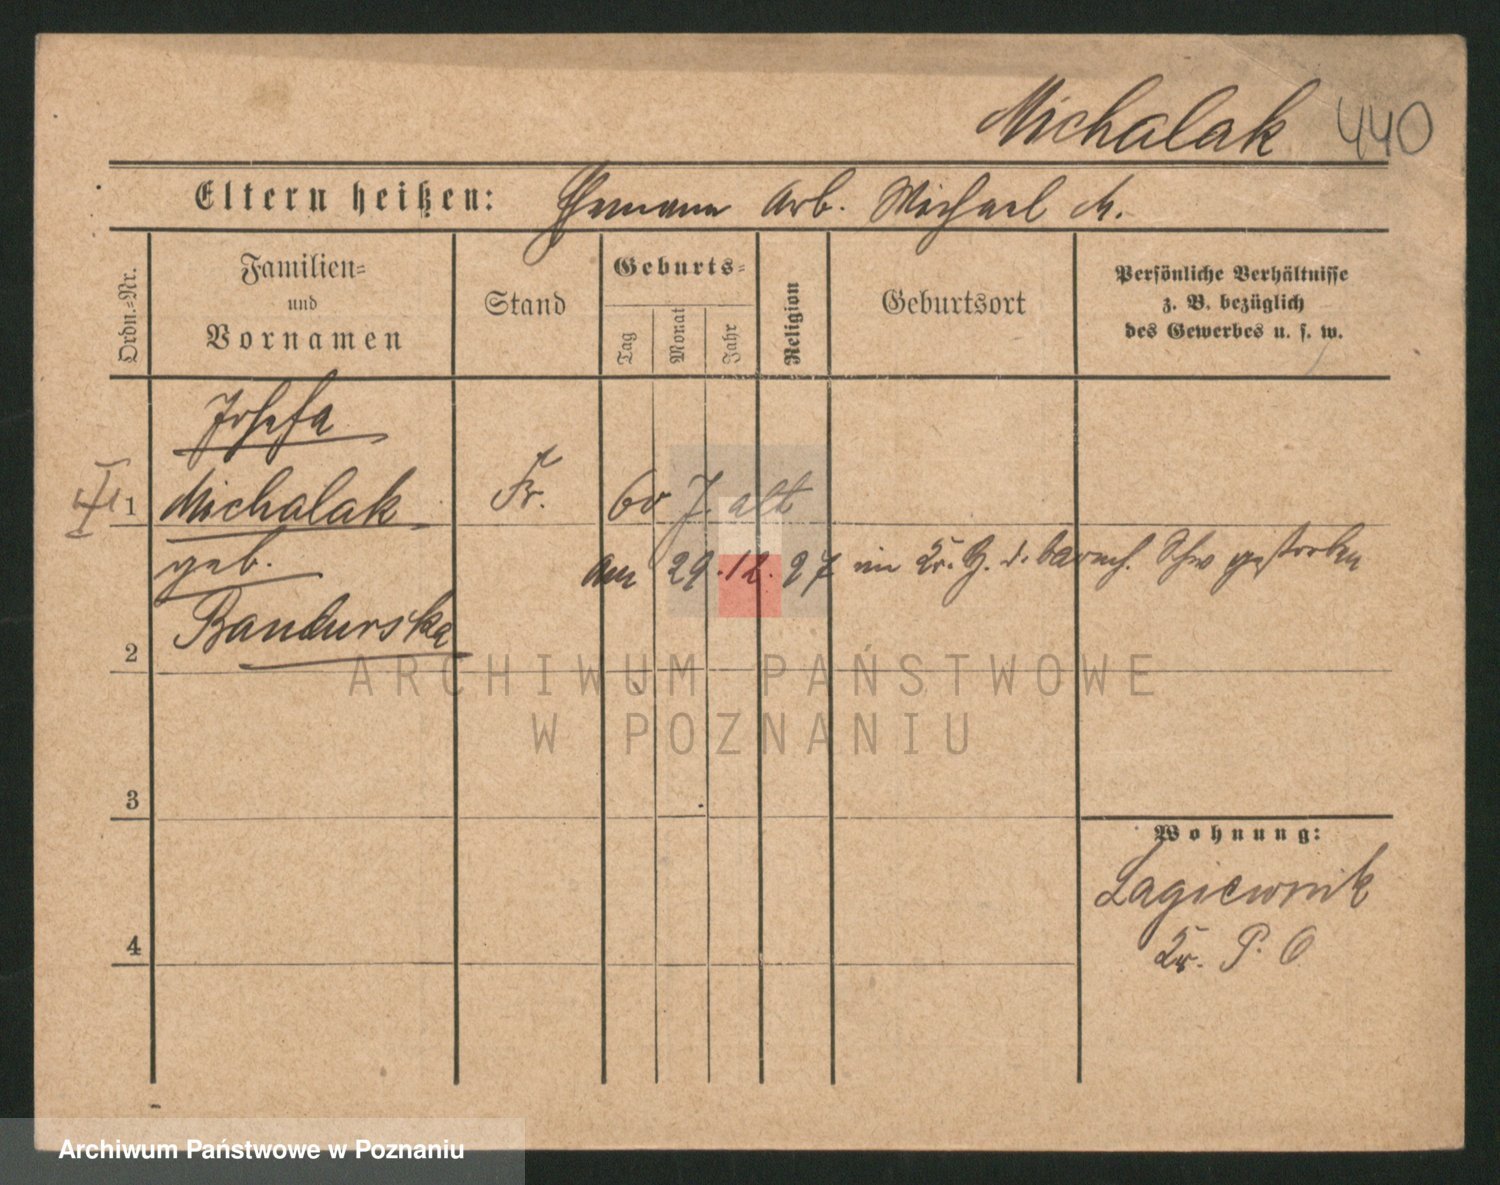 Michalak 440
Eltern heißen: Ehemann Arb. Michael M.
Ordn.-Nr.
Familien-
und
Vornamen
Stand
Geburts-
Tag
Monat
Jahr
Religion
Geburtsort
Persönliche Verhältnisse
z. B. bezüglich
des Gewerbes u. s. w.
Josefa
1 Michalak Fr. 60 J. alt
geb. am 29.12.97 im Kr. H. d. barmh. Schw gestorben
Bandurska
2
3
4
Wohnung:
Lagiewnik
Kr. P. O
ARCHIWUM PAŃSTWOWE
W POZNANIU
Archiwum Państwowe w Poznaniu